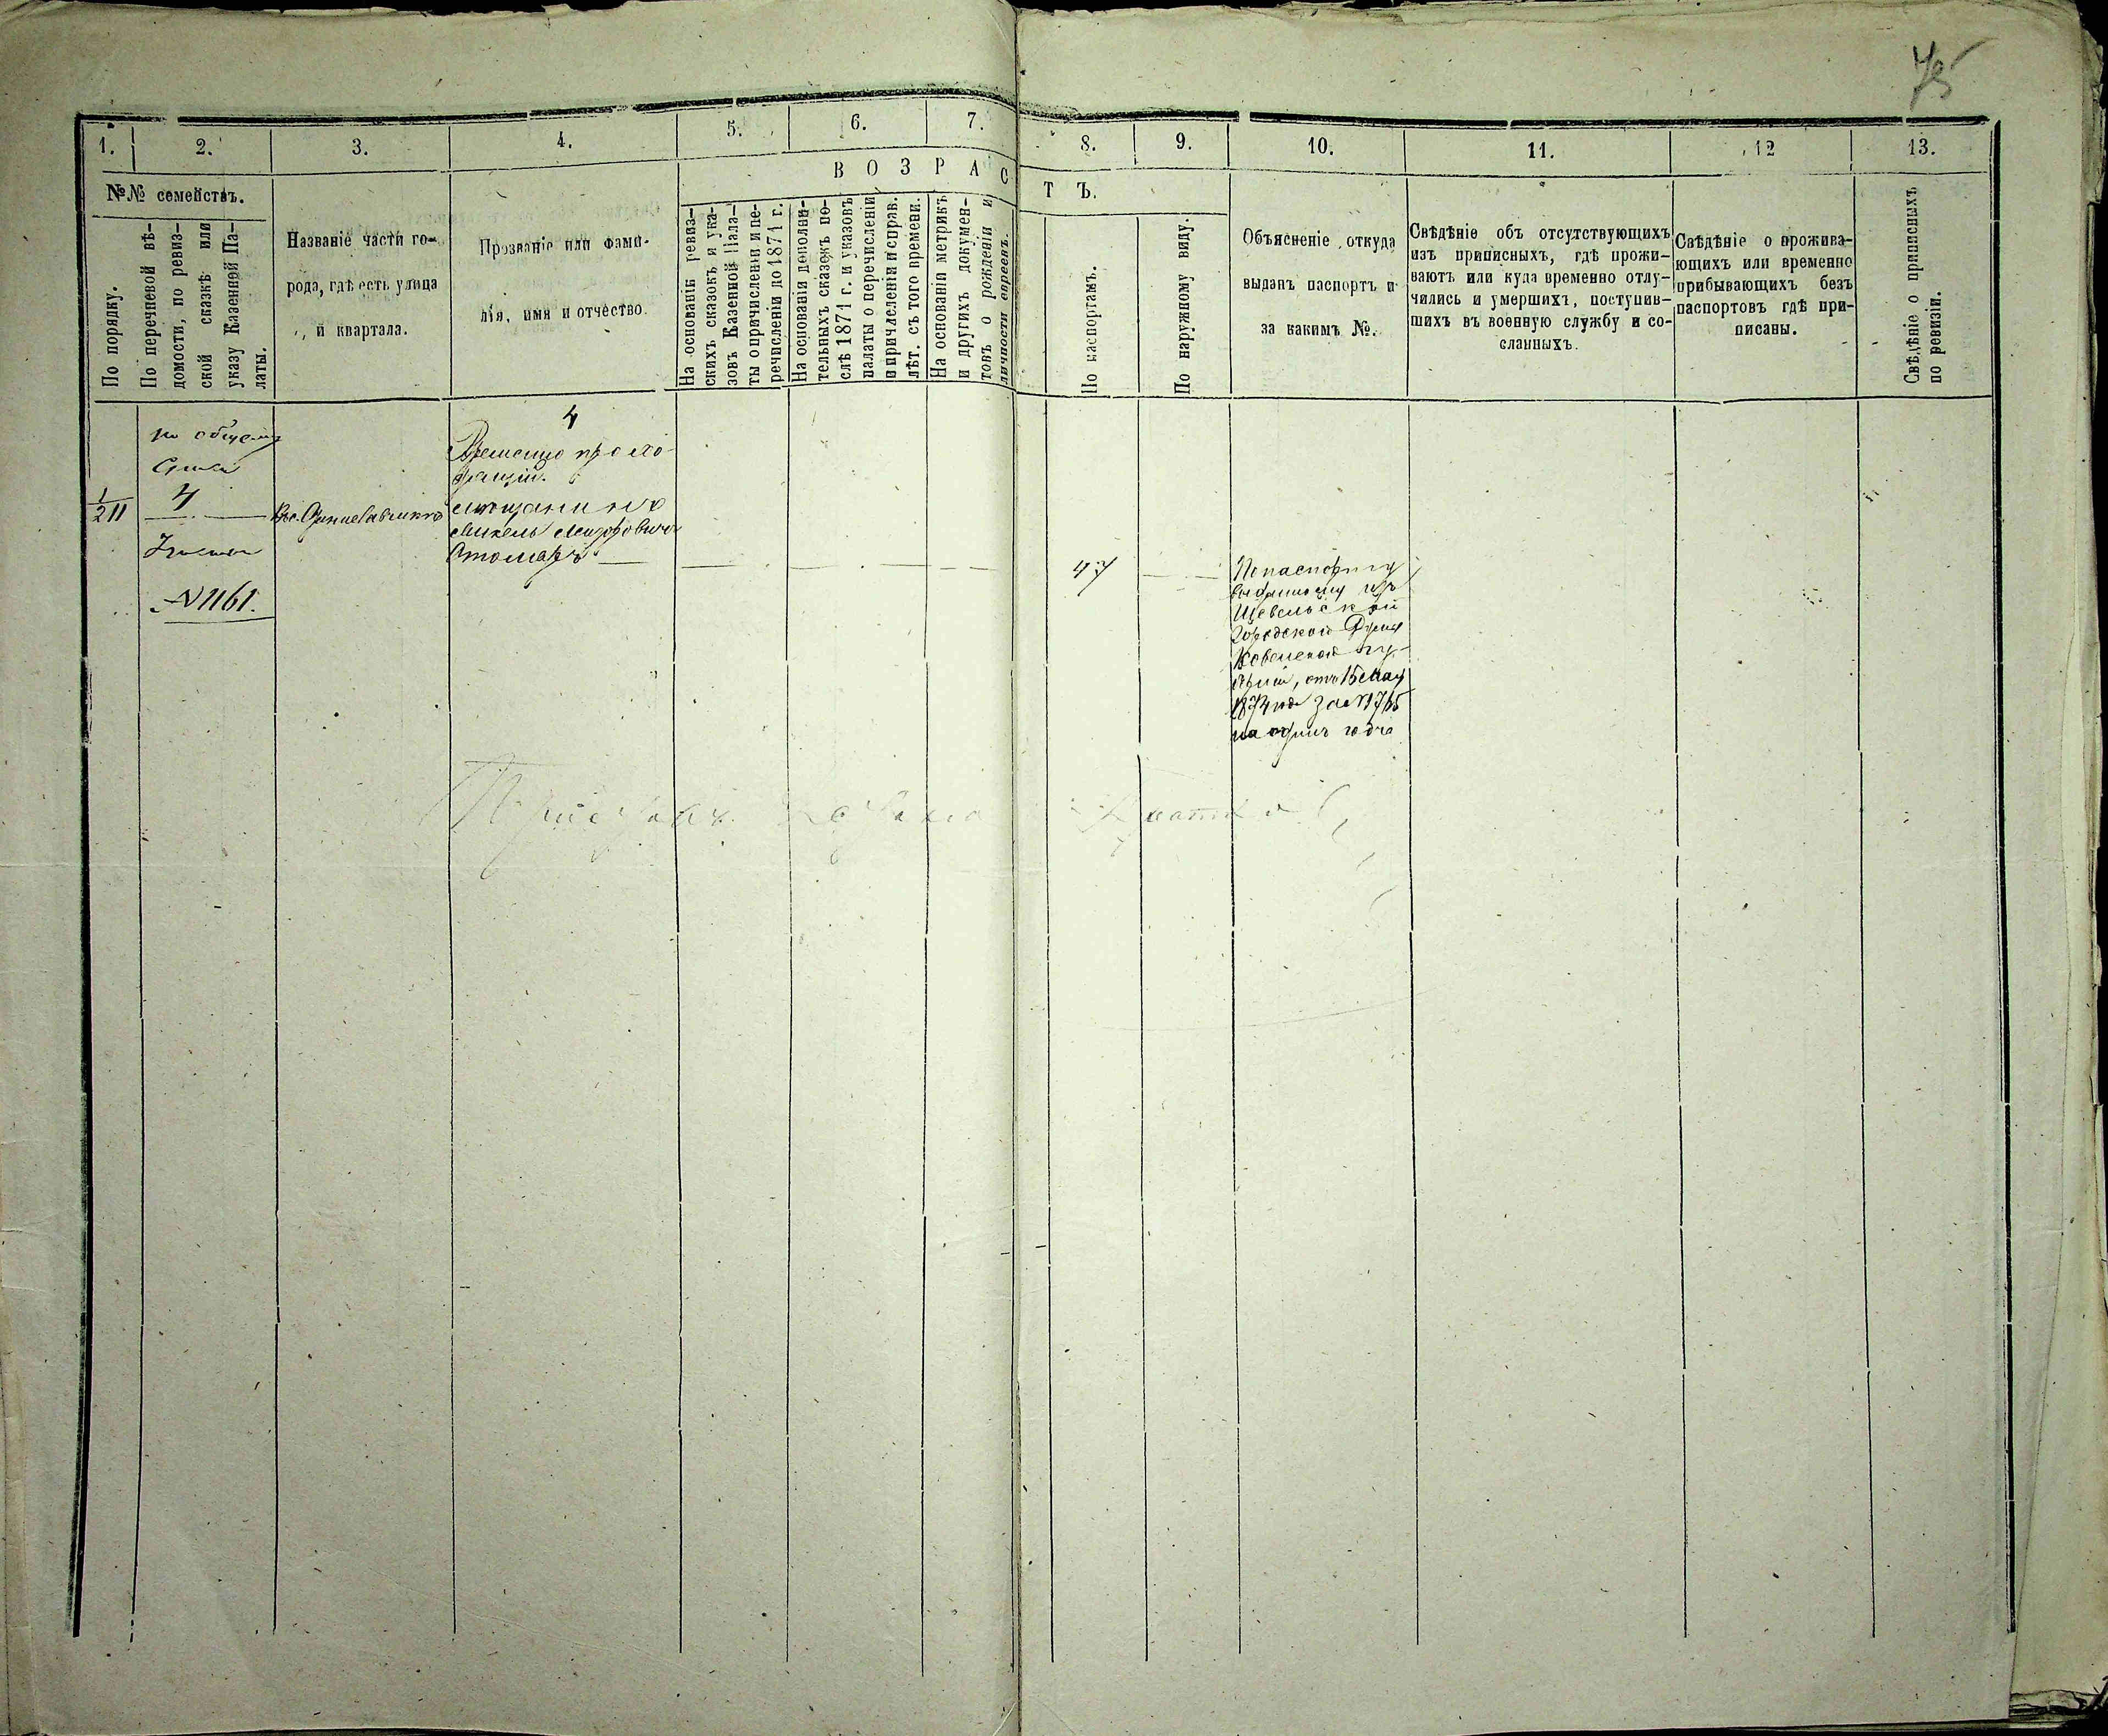 75
1.
2.
3.
4.
5.
6.
7.
8.
9.
10.
11.
12
13.
№№ семействъ.
По порядку.
По перечневой вѣ-
домости, по ревиз-
ской сказкѣ или
указу Казенней Па-
латы.
Названіе части го-
рода, гдѣ есть улица
и квартала.
Прозваніе или фами-
лія, имя и отчество.
ВОЗРАСТЪ.
На основаніи ревиз-
скихъ сказокъ и ука-
зовъ Казенной Пала-
ты о причисленіи и пе-
речисленіи до 1871 г.
На основаніи дополни-
тельныхъ сказокъ по-
слѣ 1871 г. и указовъ
палаты о перечисленіи
и причисленіи и справ.
лѣт. съ того времени.
На основаніи метрикъ
и другихъ докумен-
товъ о рожденіи и
личности евреевъ.
По паспортамъ.
По наружному виду.
Объясненіе откуда
выданъ паспортъ и
за какимъ №.
Свѣдѣніе объ отсутствующихъ
изъ приписныхъ, гдѣ прожи-
ваютъ или куда временно отлу-
чились и умершихъ, поступив-
шихъ въ военную службу и со-
сланныхъ.
Свѣдѣніе о прожива-
ющихъ или временно
прибывающихъ безъ
паспортовъ гдѣ при-
писаны.
Свѣдѣніе о приписныхъ
по ревизіи.
по общему
4
1/211
№ 1161.
4
Временно
мѣщанинъ
47
По паспорту
выданному изъ
Шавельской
Городской Думы
Ковенской гу-
берніи, отъ 15 Мая
1874 года за № 1765
на одинъ годъ